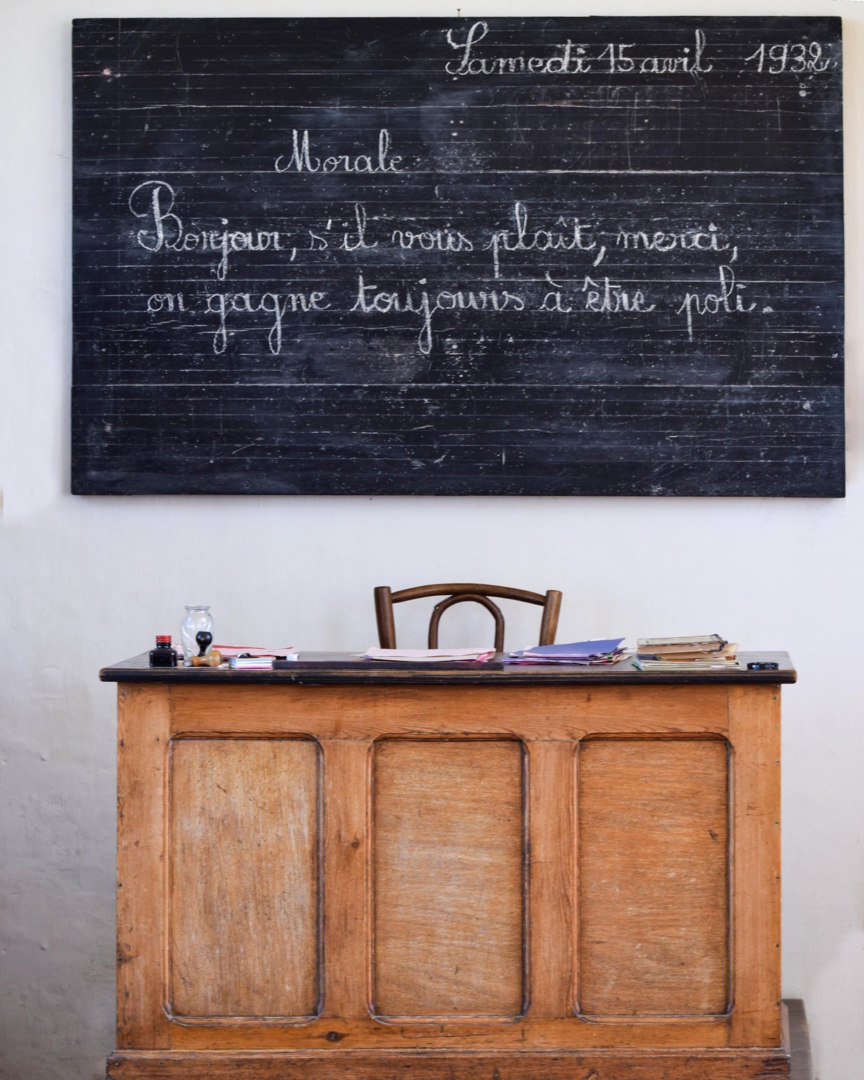 Samedi 15 avril 1932
Morale
Bonjour, s'il vous plaît, merci,
on gagne toujours à être poli.